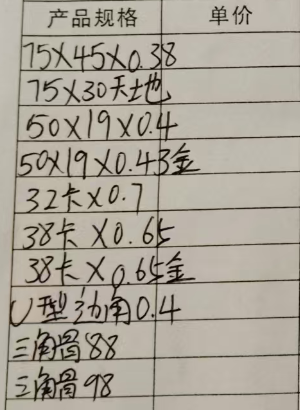 产品规格 单价
75X45X0.38
75X30天地
50X19X0.4
50X19X0.43金
32卡X0.7
38卡X0.65
38卡X0.65金
U型边角0.4
三角骨88
三角骨98